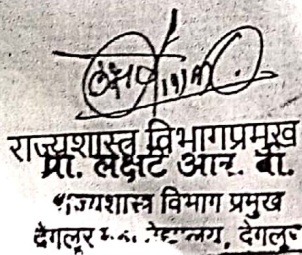 राज्यशास्त्र विभागप्रमुख
प्रा. लक्षटे आर. बी.
राज्यशास्त्र विभाग प्रमुख
देगलूर देगलूर